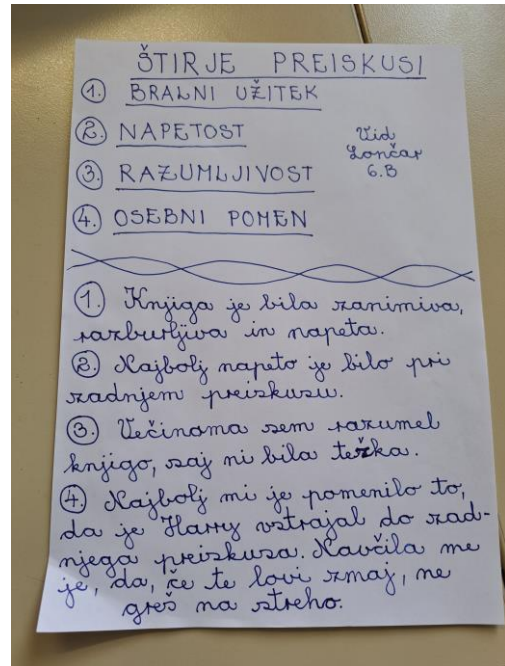 ŠTIRJE PREISKUSI
1. BRALNI UŽITEK
2. NAPETOST
3. RAZUMLJIVOST
4. OSEBNI POMEN
Vid
Lončar
6.B
1. Knjiga je bila zanimiva,
razburljiva in napeta.
2. Najbolj napeto je bilo pri
zadnjem preizkusu.
3. Večinoma sem razumel
knjigo, saj ni bila težka.
4. Najbolj mi je pomenilo to,
da je Harry vstrajal do zad-
njega preizkusa. Navčila me
je, da, če te lovi zmaj, ne
greš na streho.